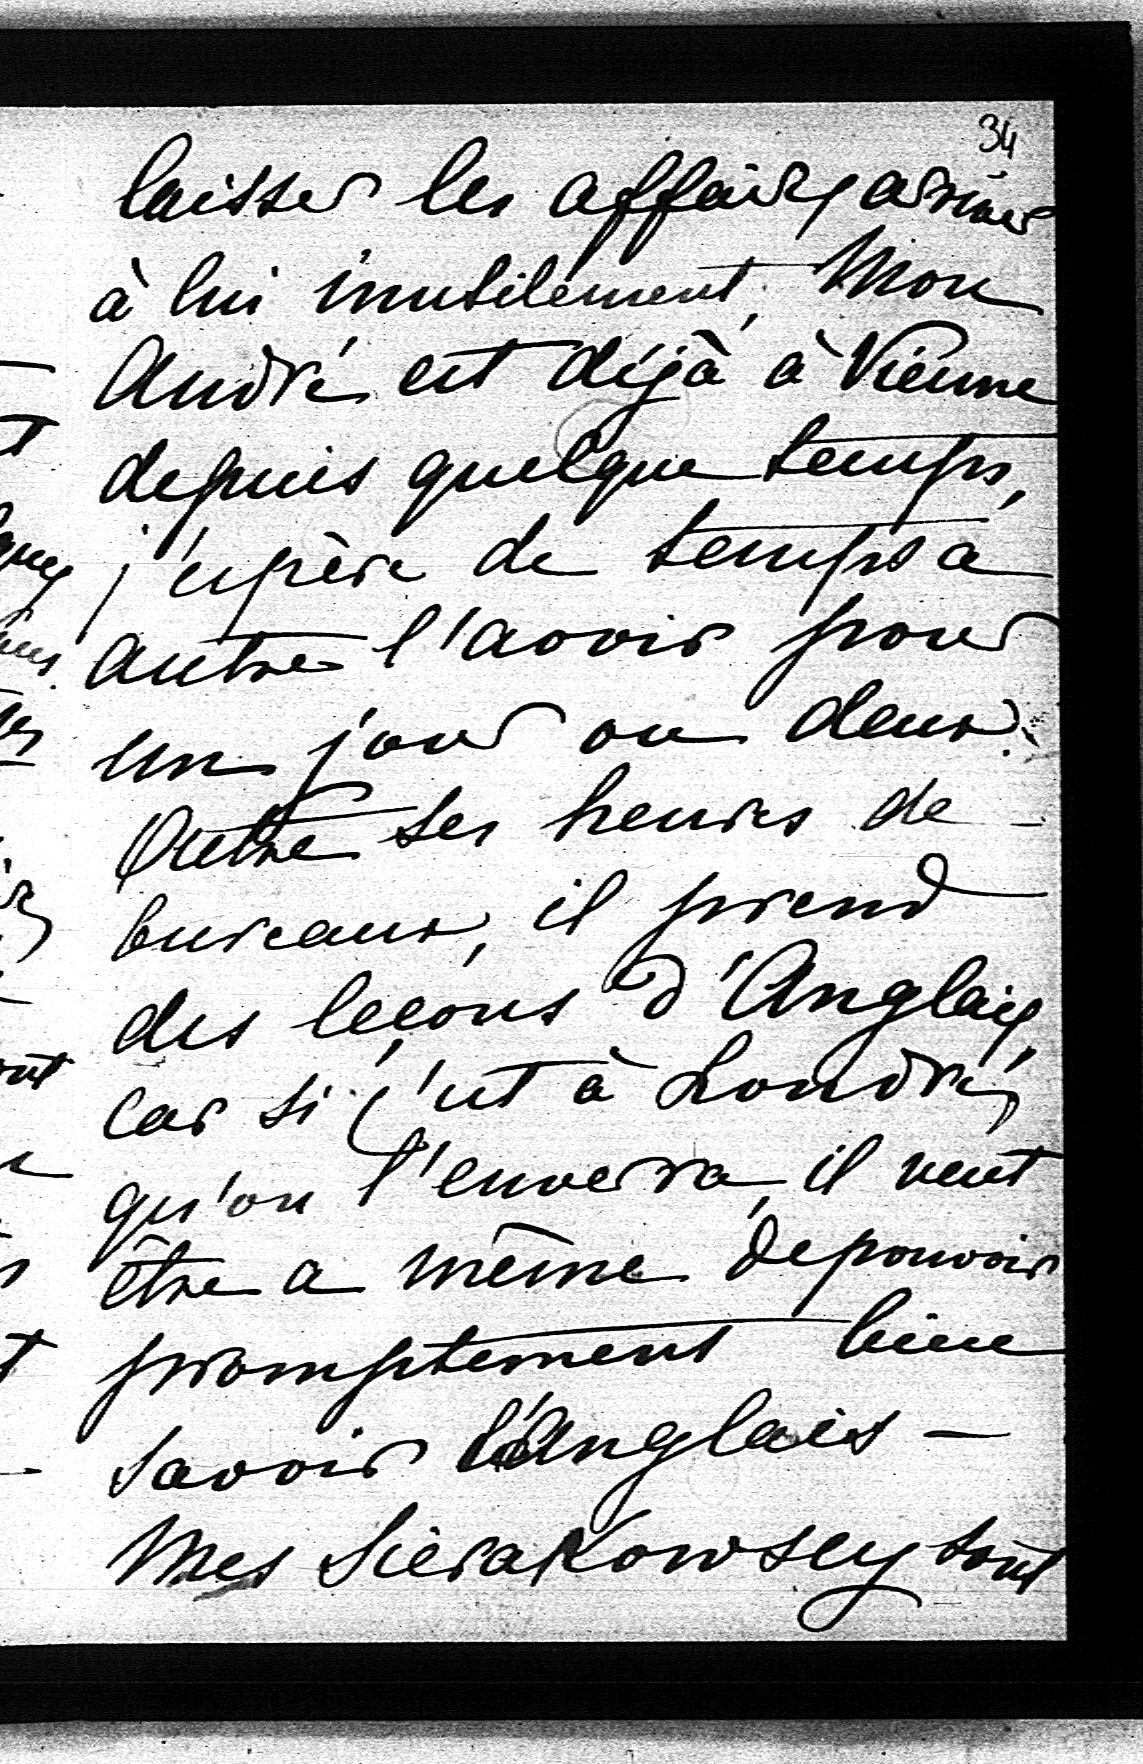 34
laisser les affaires arriver
à lui inutilement. Mon
André est déjà à Vienne
depuis quelque temps,
j'espère de temps a
autre l'avoir pour
un jour ou deux.
Outre ses heures de
bureaux, il prend
des leçons d'Anglais,
car si c'est à Londres,
qu'on l'enverra, il veut
être a même de pouvoir
promptement bien
savoir l'Anglais —
Mes Sierakowscy sont